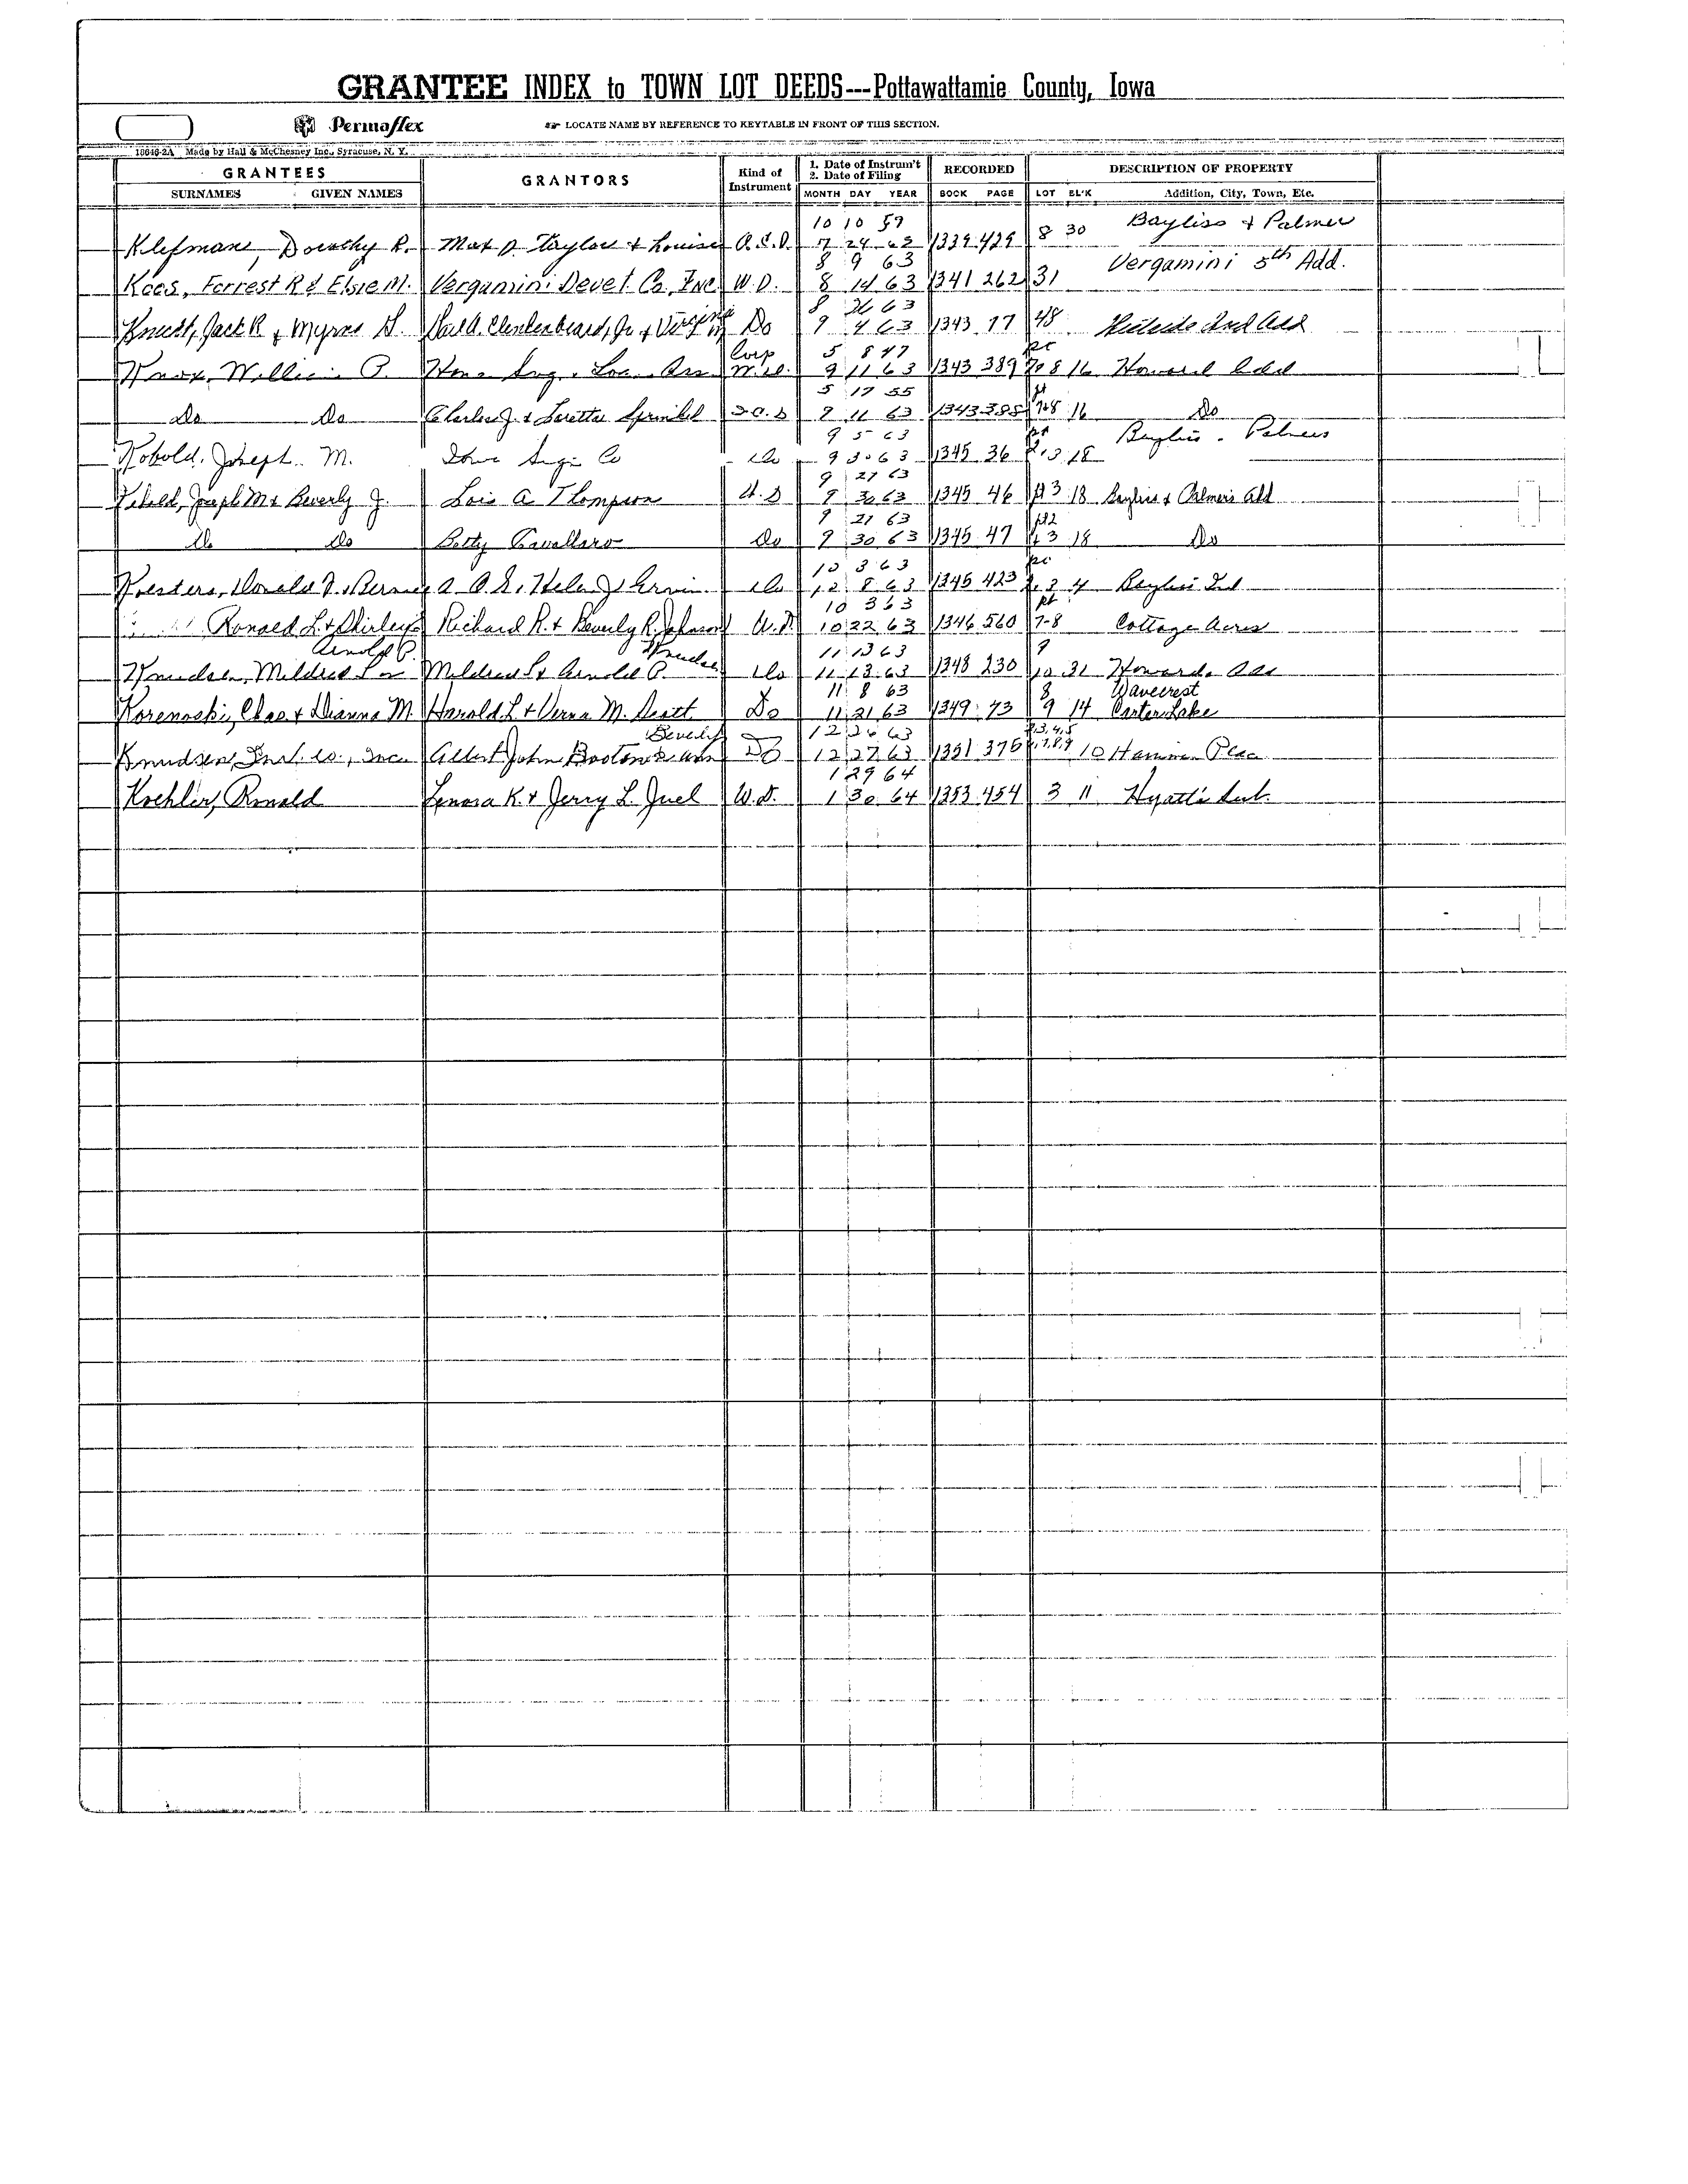 GRANTEE INDEX to TOWN LOT DEEDS---Pottawattamie County, Iowa
Permaflex ☞ LOCATE NAME BY REFERENCE TO KEYTABLE IN FRONT OF THIS SECTION.
18646-2A Made by Hall & McChesney Inc., Syracuse, N. Y.
GRANTEES GRANTORS Kind of Instrument 1. Date of Instrum't 2. Date of Filing RECORDED DESCRIPTION OF PROPERTY
SURNAMES GIVEN NAMES MONTH DAY YEAR BOOK PAGE LOT BL'K Addition, City, Town, Etc.
10 10 59 Bayliss & Palmer
Klefman, Dorothy R. Max D. Taylor & Louise 7 24 63 1339 429 8 30
8 9 63 Vergamini 5th Add.
Kees, Forrest R & Elsie M. Vergamini Devel. Co, Inc W.D. 8 14 63 1341 262 31
8 26 63
Jack R & Myrna Clinkenbeard, Jr & Do 9 4 63 1343 17 48 2nd Add
Corp 5 8 47 pt
Knox, William P. Home Sav. Loan Ass W.D. 9 11 63 1343 389 7 & 8 16 Howard Add
5 17 55 pt
Do Do Charles J. & Loretta Sprinkel 9 11 63 1343 385 7&8 16 Do
9 5 63 pt Bayliss Palmers
Kobold, Joseph M. Co Do 9 30 63 1345 36 3 18
9 27 63
Kobold, Joseph M & Beverly J. Lois A Thompson 9 30 63 1345 46 pt 3 18 Bayliss & Palmer's Add
9 21 63
Do Do Betty Cavallaro Do 9 30 63 1345 47 3 18 Do
10 3 63
Donald J. Helen J Do 8 63 1345 423 4 Bayliss 2nd
10 3 63 pt
Ronald L. & Shirley Richard R. & Beverly R. Johnson W.D. 10 22 63 1346 560 7-8 Cottage Acres
Arnold P. Knudsen 11 13 63 9
Knudsen, Mildred L or Mildred L & Arnold P. Do 11 13 63 1348 230 10 31 Howards Add
11 8 63 8 Wavecrest
Korenoski, Chas & Dianna M. Harold L & Verna M. Scott Do 11 21 63 1349 73 9 14 Carter Lake
Beverly 12 26 63
Knudsen, Inc. Albert John Ann Do 12 27 63 1351 376 10
1 29 64
Koehler, Ronald Lenora K. & Jerry L. Juel W.D. 1 30 64 1353 454 3 11 Hyatt's Sub.